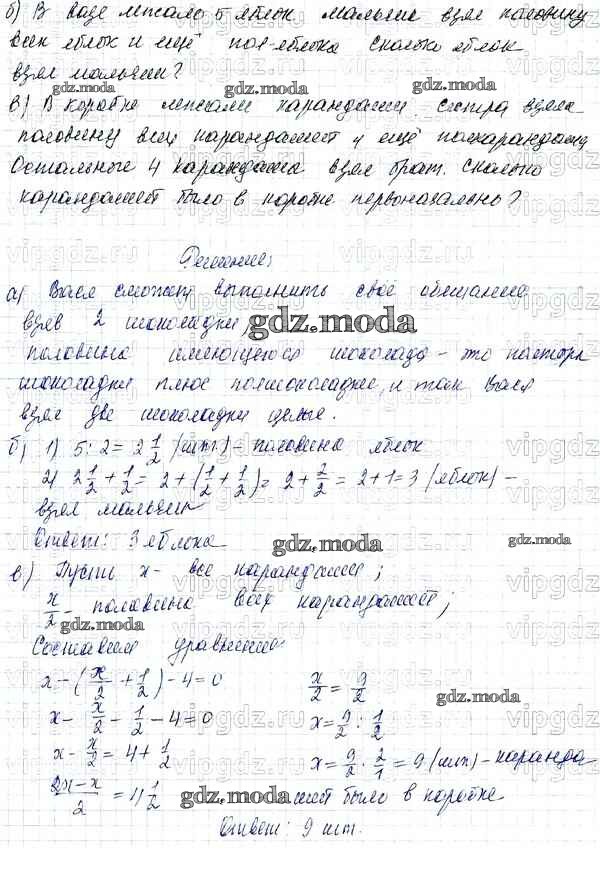 б) В вазе лежало 5 яблок. Мальчик взял половину
всех яблок и ещё пол-яблока. Сколько яблок
взял мальчик?
в) В коробке лежали карандаши. Сестра взяла
половину всех карандашей и ещё полкарандаша.
Остальные 4 карандаша взял брат. Сколько
карандашей было в коробке первоначально?
Решение:
а) Вася сможет выполнить своё обещание
взяв 2 шоколадки,
половина имеющегося шоколада - это полторы
шоколадки плюс полшоколадки, и того Вася
взял две шоколадки целые.
б) 1) 5:2=2 1/2 (шт.) - половина яблок
2) 2 1/2 + 1/2 = 2+(1/2+1/2) = 2+2/2 = 2+1=3 (яблок) -
взял мальчик
Ответ: 3 яблока
в) Пусть x - все карандаши;
x/2 - половина всех карандашей;
Составим уравнение:
x-(x/2+1/2)-4=0
x-x/2-1/2-4=0
x-x/2=4+1/2
(2x-x)/2=4 1/2
x/2=9/2
x=9/2:1/2
x=9/2·2/1=9 (шт) - каранда-
шей было в коробке
Ответ: 9 шт.
gdz.moda
vipgdz.ru